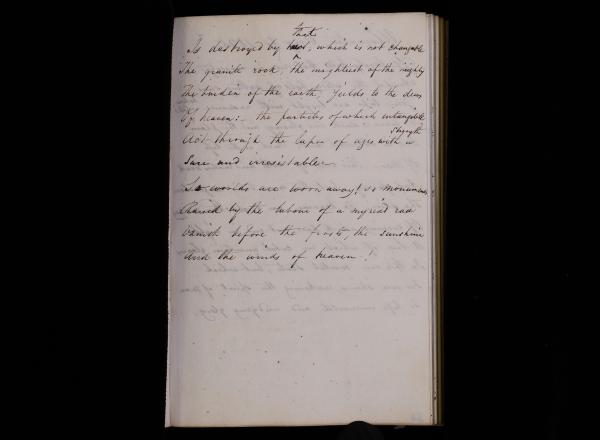 that
Is destroyed by, which is not changable
The granite rock, the mightiest of the mighty
The burden of the earth, yields to the dews
Of heaven:- the particles of which intangible
Act through the lapse of ages with a
strength
Sure and irresistable-
So worlds are worn away! so monuments
Raised by the labour of a myriad
Vanish before the frosts, the sunshine
And the winds of heaven!